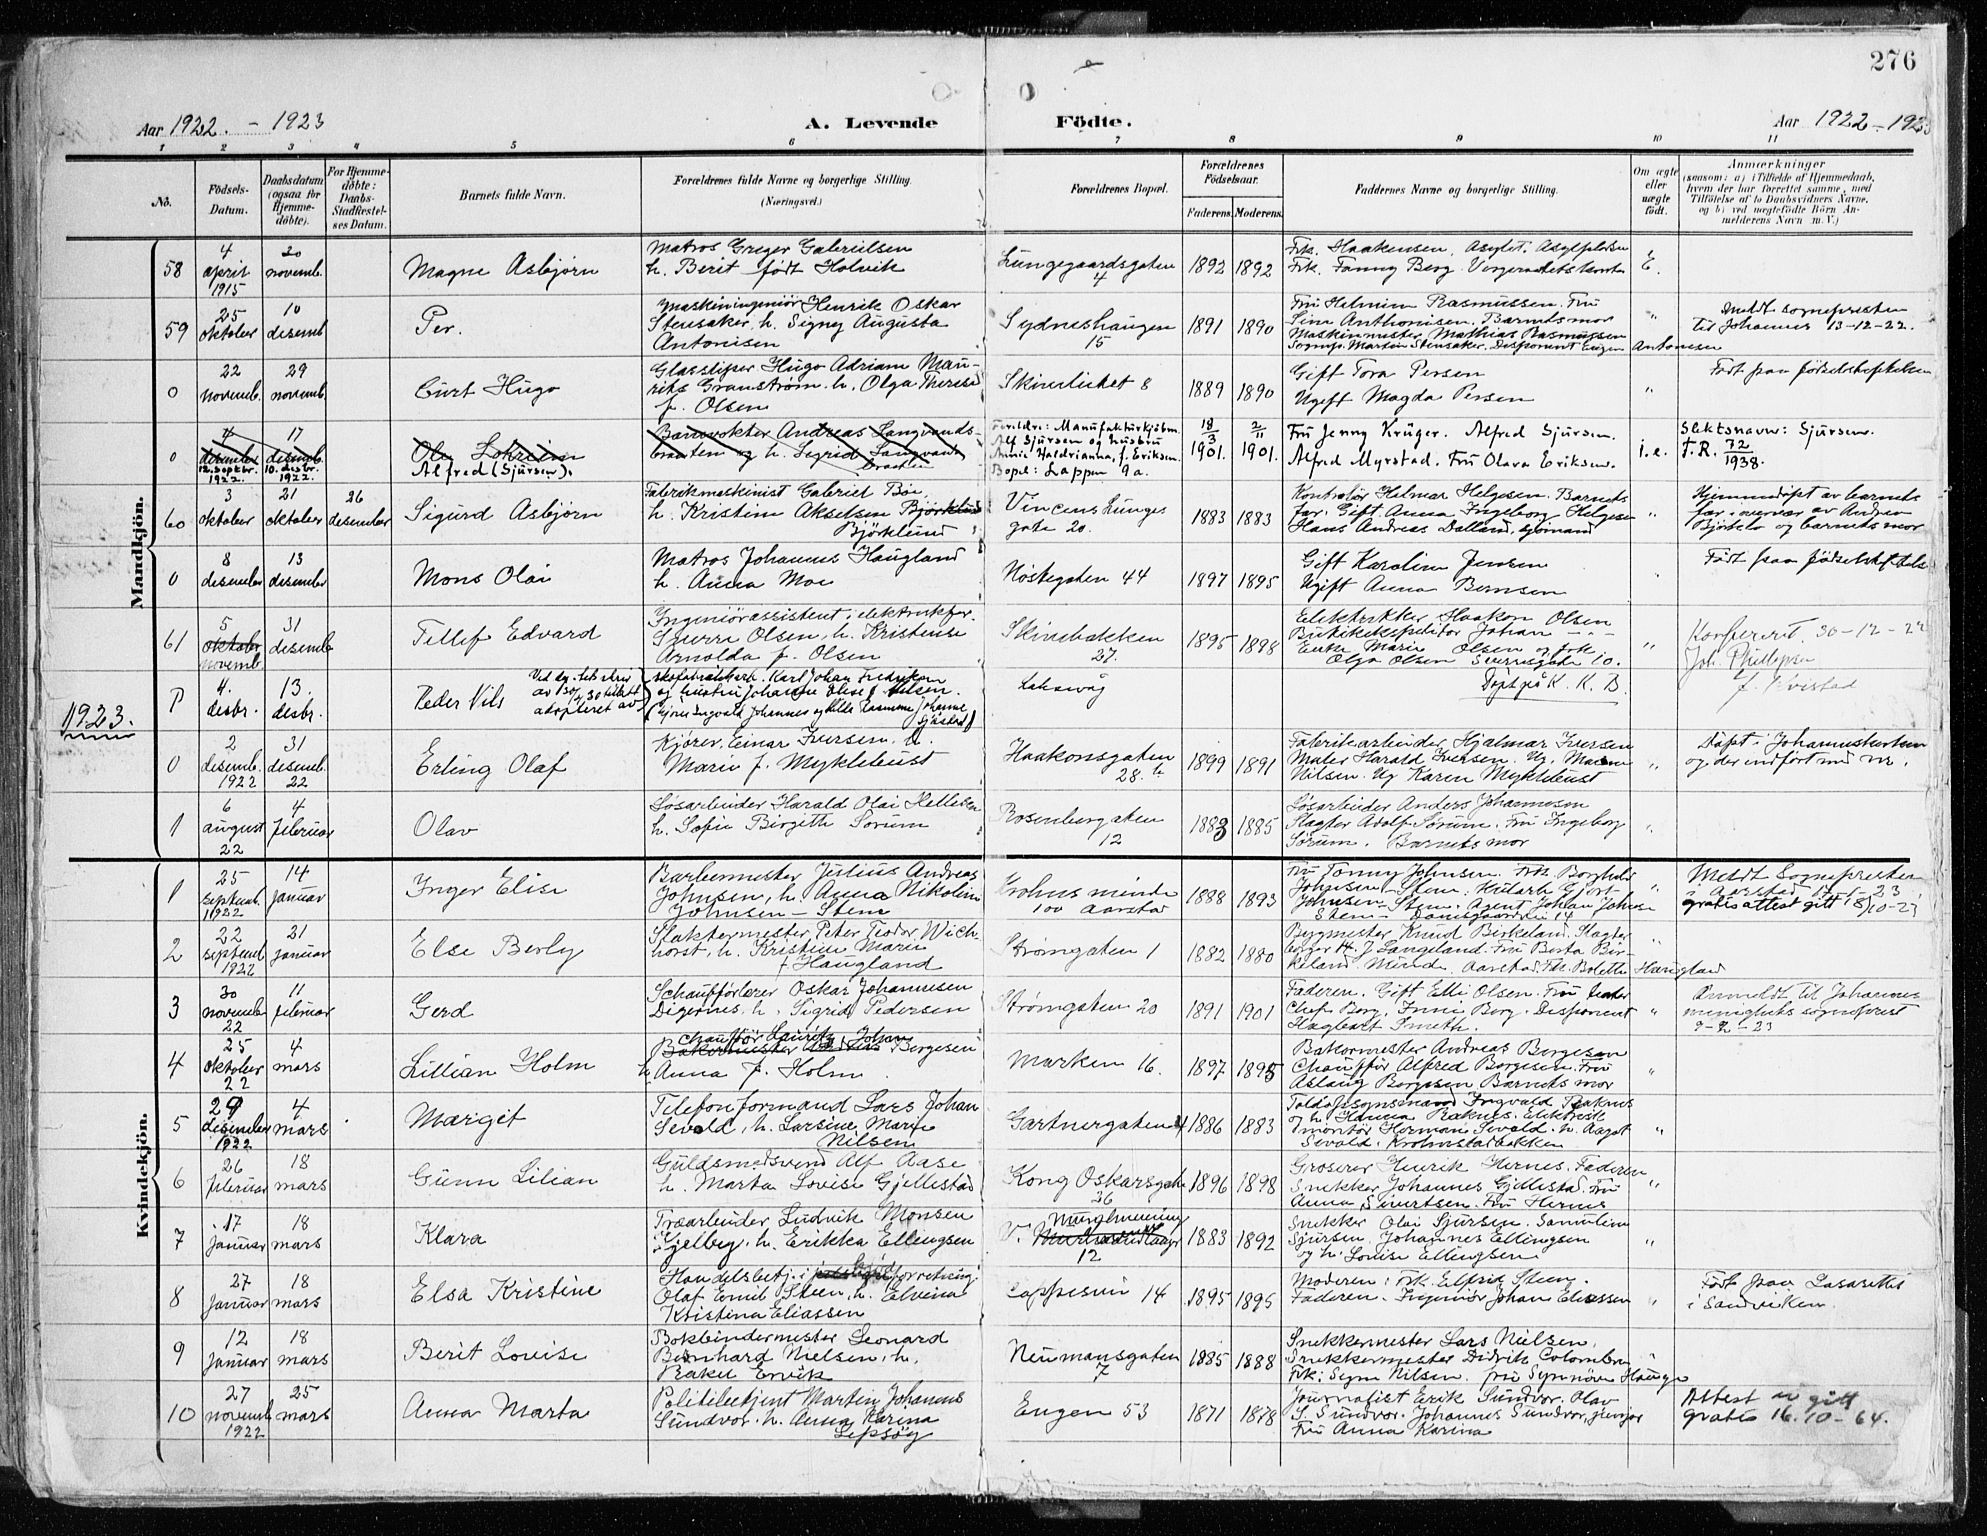 276
Aar 1922. - 1923
A. Levende
Födte.
Aar 1922-1923
1 2 3 4 5 6 7 8 9 10 11
No.
Födsels-
Datum.
Daabsdatum
(ogsaa for
Hjemme-
döbte).
For Hjemme-
döbte:
Daabs-
Stadfæstel-
ses Datum.
Barnets fulde Navn.
Forældrenes fulde Navne og borgerlige Stilling.
(Næringsvei.)
Forældrenes Bopæl.
Forældrenes
Födselsaar.
Faderens. Moderens.
Faddernes Navne og borgerlige Stilling.
Om ægte
eller
uægte
födt.
Anmærkninger
(saasom: a) i Tilfælde af Hjemmedaab,
hvem der har forrettet samme, med
Tilföielse af to Daabsvidners Navne,
og b) ved uægtefödte Börn An-
melderens Navn m. V.)
Mandkjön.
58
4
april
1915
20
novemb.
Magne Asbjørn
Matros Greger Gabrielsen
h. Berit født Holvik
Lungegaardsgaten
4
1892 1892
Frk. Haakensen, Asylet.
Frk. Fanny Berg
E.
59
25
oktober
10
desemb.
Per.
Maskiningeniør Henrik Oskar
Stensaker. h. Signy Augusta
Antonisen
Sydneshaugen
15
1891 1890
Fru Helmine Rasmussen. Fru
Sina Anthonisen. Barnets mor
Maskinmester Mathias Rasmussen
Sognepr. Martin Stensaker. Disponent Eugen Antonisen
"
Meldt sognepresten
til Johannes 13-12-22.
0
22
novemb.
29
novemb.
Curt Hugo
Glassliper Hugo Adrian Mau-
ritz Granstrøm. h. Olga Therese
f. Olsen
Skivebakket 8
1889 1890
Gift Tora Persen
Ugift Magda Persen
"
Født paa fødselsstiftelsen
0
4
desember
12. septbr.
1922
17
desemb.
10. desbr.
1922.
Ole Lokreim
Alfred (Sjursen).
Banevokter Andreas Langvands-
braaten og h. Sigrid Langvands-
braaten
Foreldre: Manufakturkjøbm.
Alf Sjursen og hustru
Annie Haldrianna, f. Eriksen.
Bopel: Lappen 9a.
18/3
1901.
2/11
1901.
Fru Jenny Krüger. Alfred Sjursen.
Alfred Myrstad. Fru Olava Eriksen.
i.e.
Slektsnavn: Sjursen.
J.R. 72/1938.
60
3
oktober
21
oktober
26
desember
Sigurd Asbjørn
Fabrikmaskinist Gabriel Bøe
h. Kristine Akselsen Bjørklund
Björklund
Vincens Lunges
gate 20.
1883 1883
Kontrolør Helmar Helgesen. Barnets
far. Gift Anna Ingeborg Helgesen
Hans Andreas Dalland, sjømand
"
Hjemmedøpt av barnets
far i overvær av Andrea
og barnets mor
0
8
desember
13
desember
Mons Olai
Matros Johannes Haugland
h. Anna Moe
Nøstegaten 44
1897 1895
Gift Karoline Jensen
Ugift Anna Berntsen
Født paa fødselsstiftelse
61
5
oktober
novemb.
31
desemb.
Tellef Edvard
Ingeniørassistent, elektrisk
Sverre Olsen, h. Kristense
Arnolda f. Olsen
Skivebakken
27.
1895 1898
Elektrikker Haakon Olsen
Butikekspeditør Johan - " -
Enke Marie Olsen og frk
Olga Olsen Sverresgate 10.
Døpt på K. K. B.
"
30-12-22
Joh. Phillipsen
f. Kvistad
1923.
P
4.
desbr.
13.
desbr.
Peder Nils
adopteret av
skofabrikkarb. Karl Johan Fredriksen
og hustru Johanne Elise f. Nilsen.
Laksevåg
0
2
desemb.
1922
31
desemb.
22
Erling Olaf
Kjører Einar Iversen. h.
Marie f. Myklebust
Haakonsgaten
28.
1899 1891
Fabrikarbeider Hjalmar Iversen
Maler Harald Iversen. Ug.
Nilsen. Ug Karen Myklebust
"
Døpt i Johanneskirken
og der indført med nr.
1
6
august
22
4
februar
Olav
Løsarbeider Harald Olai Hellesen
h. Sofie Birgith Sørum
Rosenbergaten
12
1883 1885
Løsarbeider Anders Johannesen
Slagter Adolf Sørum. Fru Ingeborg
Sørum. Barnets mor
"
Kvindekjön.
1
25
septemb.
1922
14
januar
Inger Elise
Barbermester Julius Andreas
Johnsen, h. Anna Nikoline
Johnsen - Stene
Krohns minde
100 Aarstad
1888 1893
Fru Fanny Johnsen. Frk. Borghild
Johnsen - Stene.
Johnsen - Stene. Agent Johan Johnse
Stene - Danmarksgaard
"
Meldt Sognepresten
i Aarstad 17-1-23
gratis attest gitt 18/10-2
2
22
septemb
1922
21
januar
Else Berly
Slaktermester Peter Teodor Wich-
horst, h. Kristine Marie
f Haugland
Strømgaten 1
1882 1880
Bygmester Knud Birkeland. Slagter
H. J Langeland. Fru Berta Bir-
keland, Minde, Aarstad, Frk. Bolette Haugland
"
3
30
novemb
22
11
februar
Gerd
Schaufførlærer Oskar Johannesen
Digernes, h. Sigrid Pedersen
Strømgaten 20
1891 1901
Faderen. Gift Elli Olsen. Fru teater
Chef Borg, Inni Borg. Disponent
Hagbart Smeth.
"
Anmeldt til Johannes
menighets sogneprest
9-2-23
4
25
oktober
22
4
mars
Lillian Holm
chauffør Lauritz Johan
Bakermester Andreas Børgesen
h. Anna f. Holm
Marken 16.
1897 1895
Bakermester Andreas Børgesen
Chauffør Alfred Børgesen. Fru
Aslaug Børgesen Barnets mor
"
5
29
desember
1922
4
mars
Margit
Telefonformand Lars Johan
Sevold, h. Larsine Marie
Nilsen
Gartnergaten 4
1886 1883
Toldopsynsmand Ingvald Raknes
h. Hanna Raknes. Elektrisk
montør Herman Sevold. h. Aagot
Sevold. Krohnstadbakken
"
6
26
februar
18
mars
Gunn Lilian
Guldsmedsvend Alf Aase
h. Marta Lovise Gjellestad
Kong Oskarsgate
26
1896 1898
Groserer Henrik Hernes. Faderen
Snekker Johannes Gjellestad. Fru
Anna Sivertsen. Fru Hernes
"
7
17
januar
18
mars
Klara
Træarbeider Ludvik Monsen
Fjelberg. h. Erikka Ellingsen
V.
12
1883 1892
Snekker Olai Sjursen.
Sjursen. Johannes Ellingsen
og h. Louise Ellingsen
"
8
27
januar
18
mars
Elsa Kristine
Handelsbetj. i forretning.
Olaf Emil Steen, h. Elvina
Kristina Eliassen
Cappesvei 14
1895 1895
Moderen. Frk. Elfrid Steen.
Faderen. Ingeniør Johan Eliassen
"
Født paa Lasarettet
i Sandviken.
9
12
januar
18
mars
Berit Lovise
Bokbindermester Leonard
Bernhard Nielsen, h.
Rakel Ervik
Neumansgaten
7
1885 1888
Snekkermester Lars Nielsen.
Snekkermester Didrik Colombus
Frk: Signe Nilsen. fru Synnøve Hauge
"
10
27
novemb
1922
25
mars
Anna Marta
Politibetjent Martin Johannes
Sundvor. h. Anna Karina
Lepsøy
Engen 53
1871 1878
Journalist Erik Sundvor. Olav
S. Sundvor. Johannes Sundvor, junior
Fru Anna Karina
"
Attest er gitt
gratis 16.10-64.